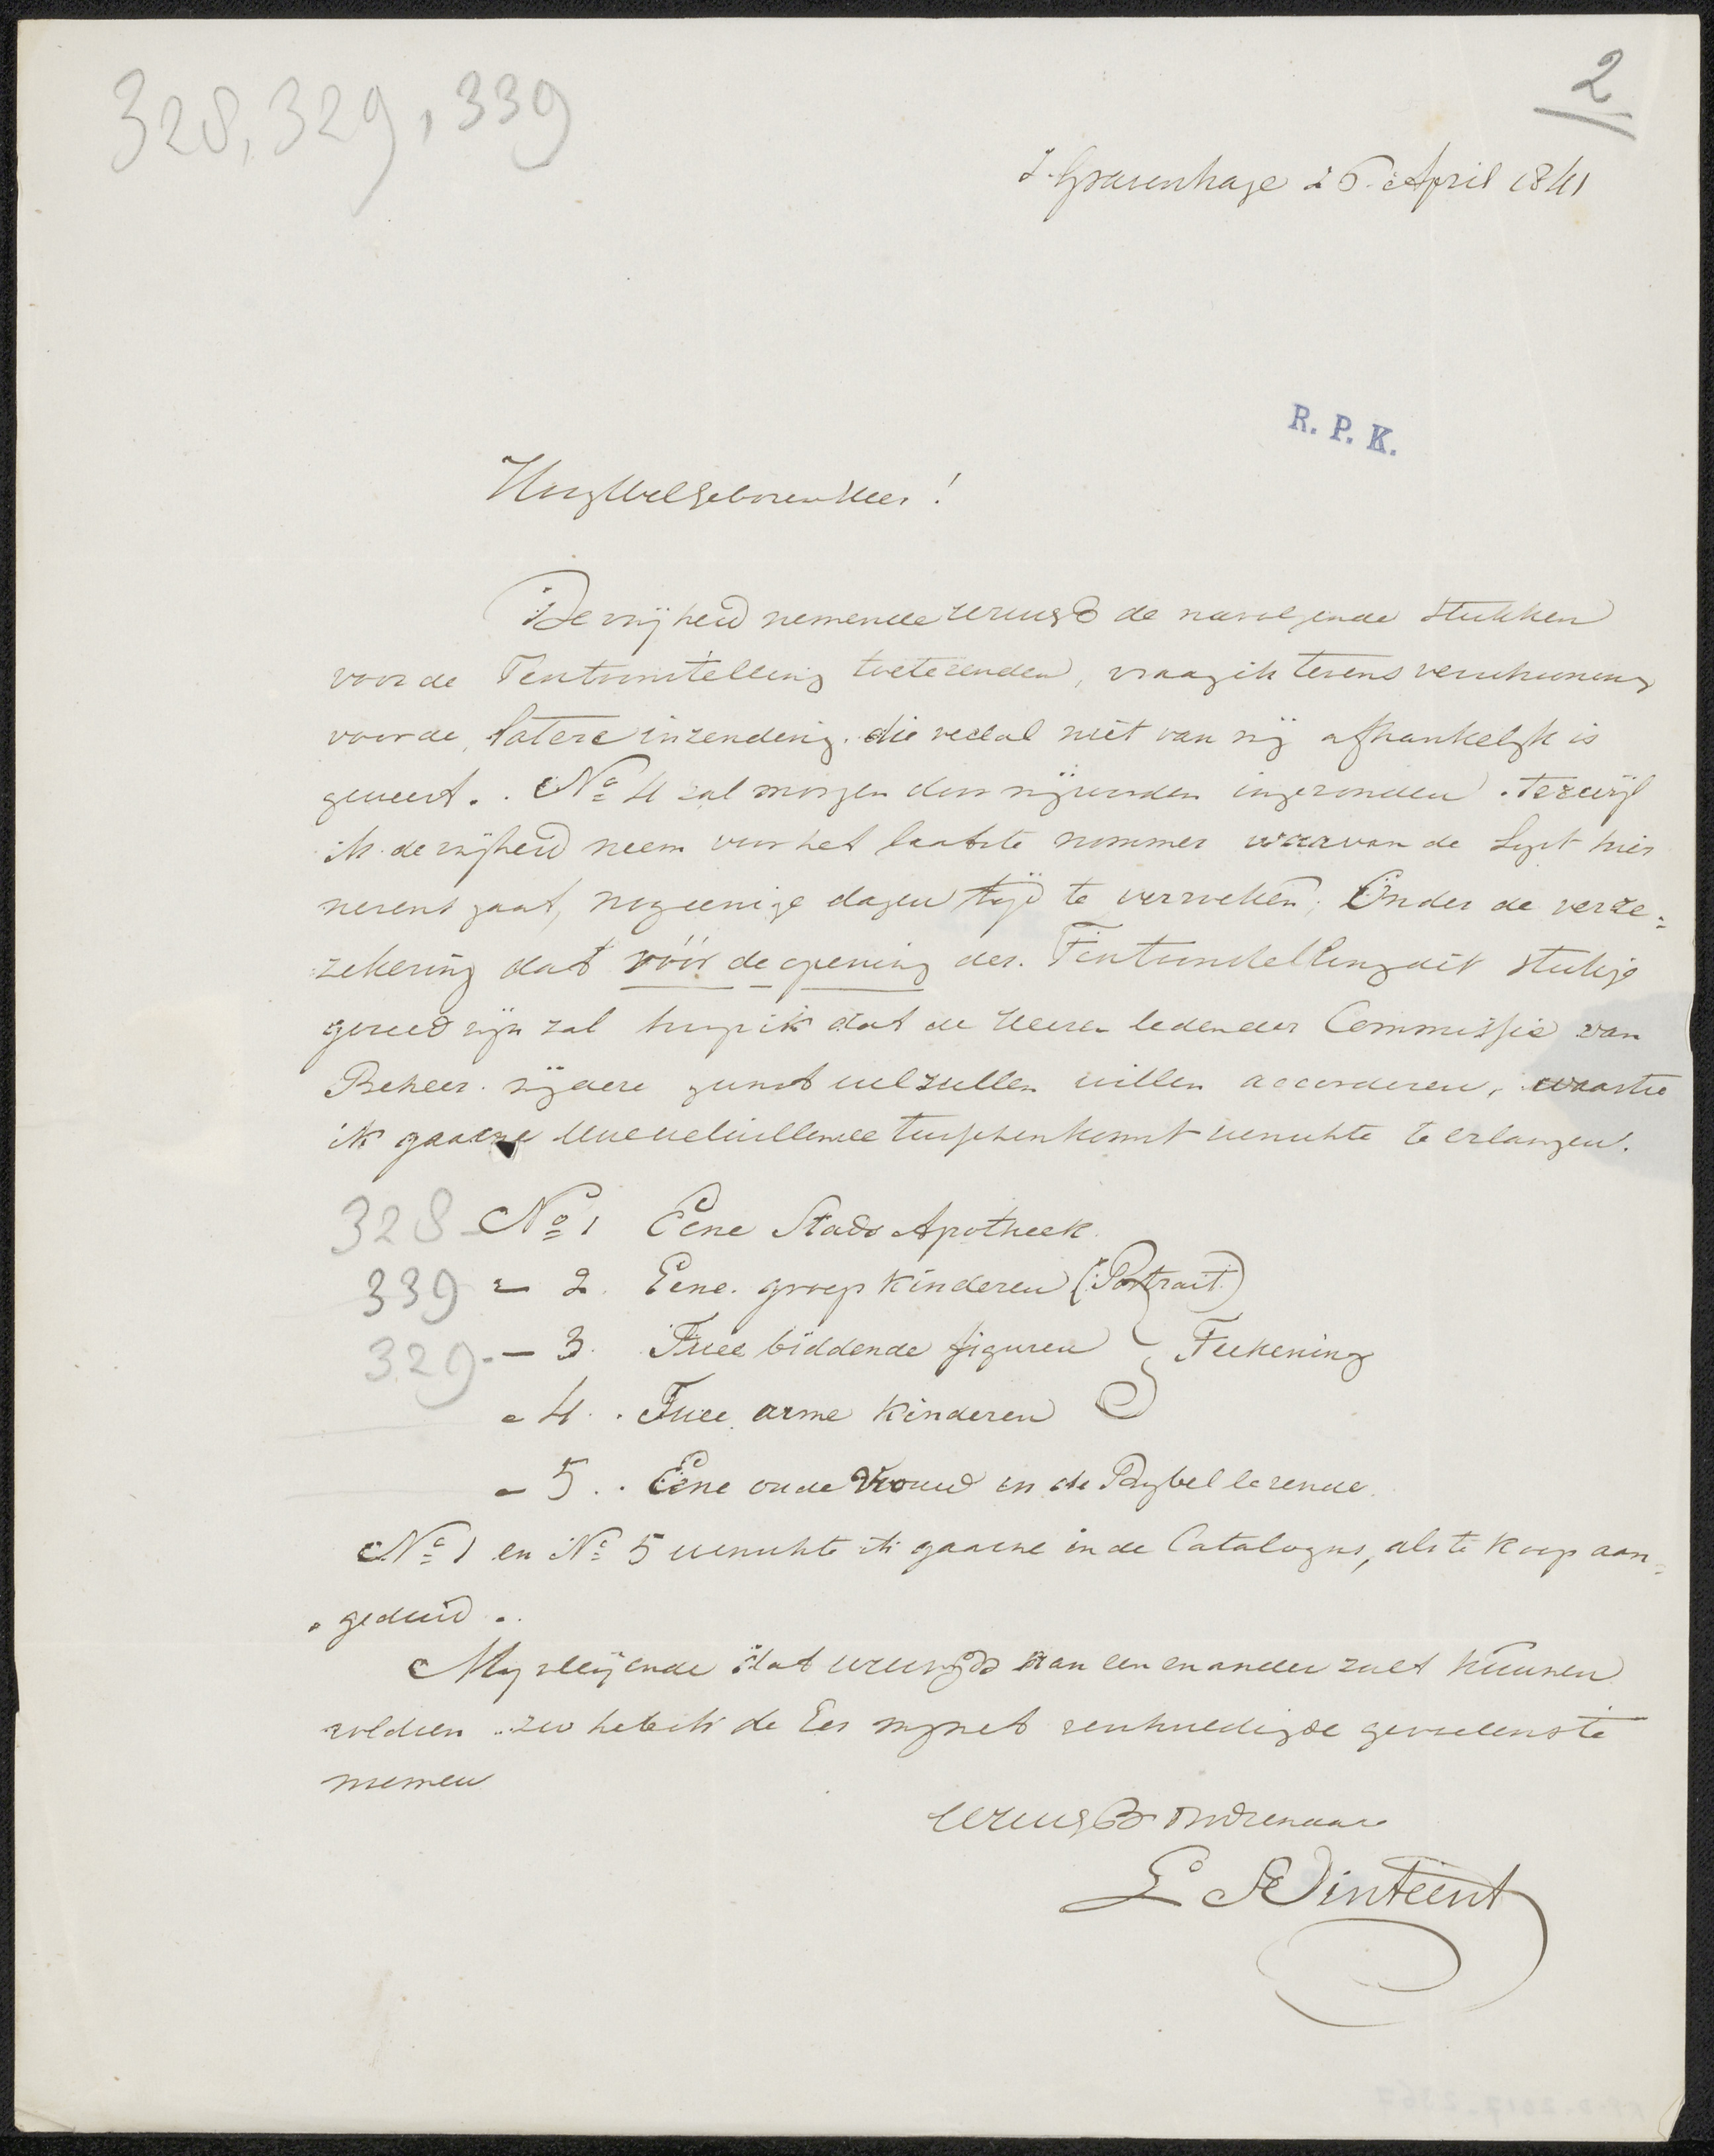 328, 329, 339
2
s'Gravenhage 26 April 1841
R. P. K.
HoogWelGeboren Heer!
De vrijheid nemende UWEdG de navolgende Stukken
voor de Tentoonstelling toetezenden, vraag ik tevens verschooning
voor de latere inzending. die veelal niet van mij afhankelijk is
geweest. . No 4 zal morgen door mij worden ingezonden. terwijl
ik de vrijheid neem voor het laatste nommer waarvan de Lyst hier
nevens gaat, nog eenige dagen tijd te verzoeken; Onder de verze=
zekering dat vóór de opening der Tentoonstelling dit stukje
gereed zijn zal hoop ik dat de Heeren leden der Commissie van
Beheer mij deze gunst wel zullen willen accorderen, waartoe
ik gaarne Uwe welwillende tusschenkomst wenschte te erlangen.
328 - No 1 Eene Stads Apotheek.
339 - 2. Eene groep Kinderen (Portrait)
329 - - 3. Twee biddende figuren } Teekening
- 4. . Twee arme Kinderen
- 5. . Eene oude Vrouw in de Bybel lezende.
No 1 en No 5 wenschte ik gaarne in de Catalogus, als te Koop aan=
geduid .
My vleijende dat aan een en ander zult kunnen
voldoen .. zoo heb ik de Eer my met gevoelens te
noemen
Dienaar